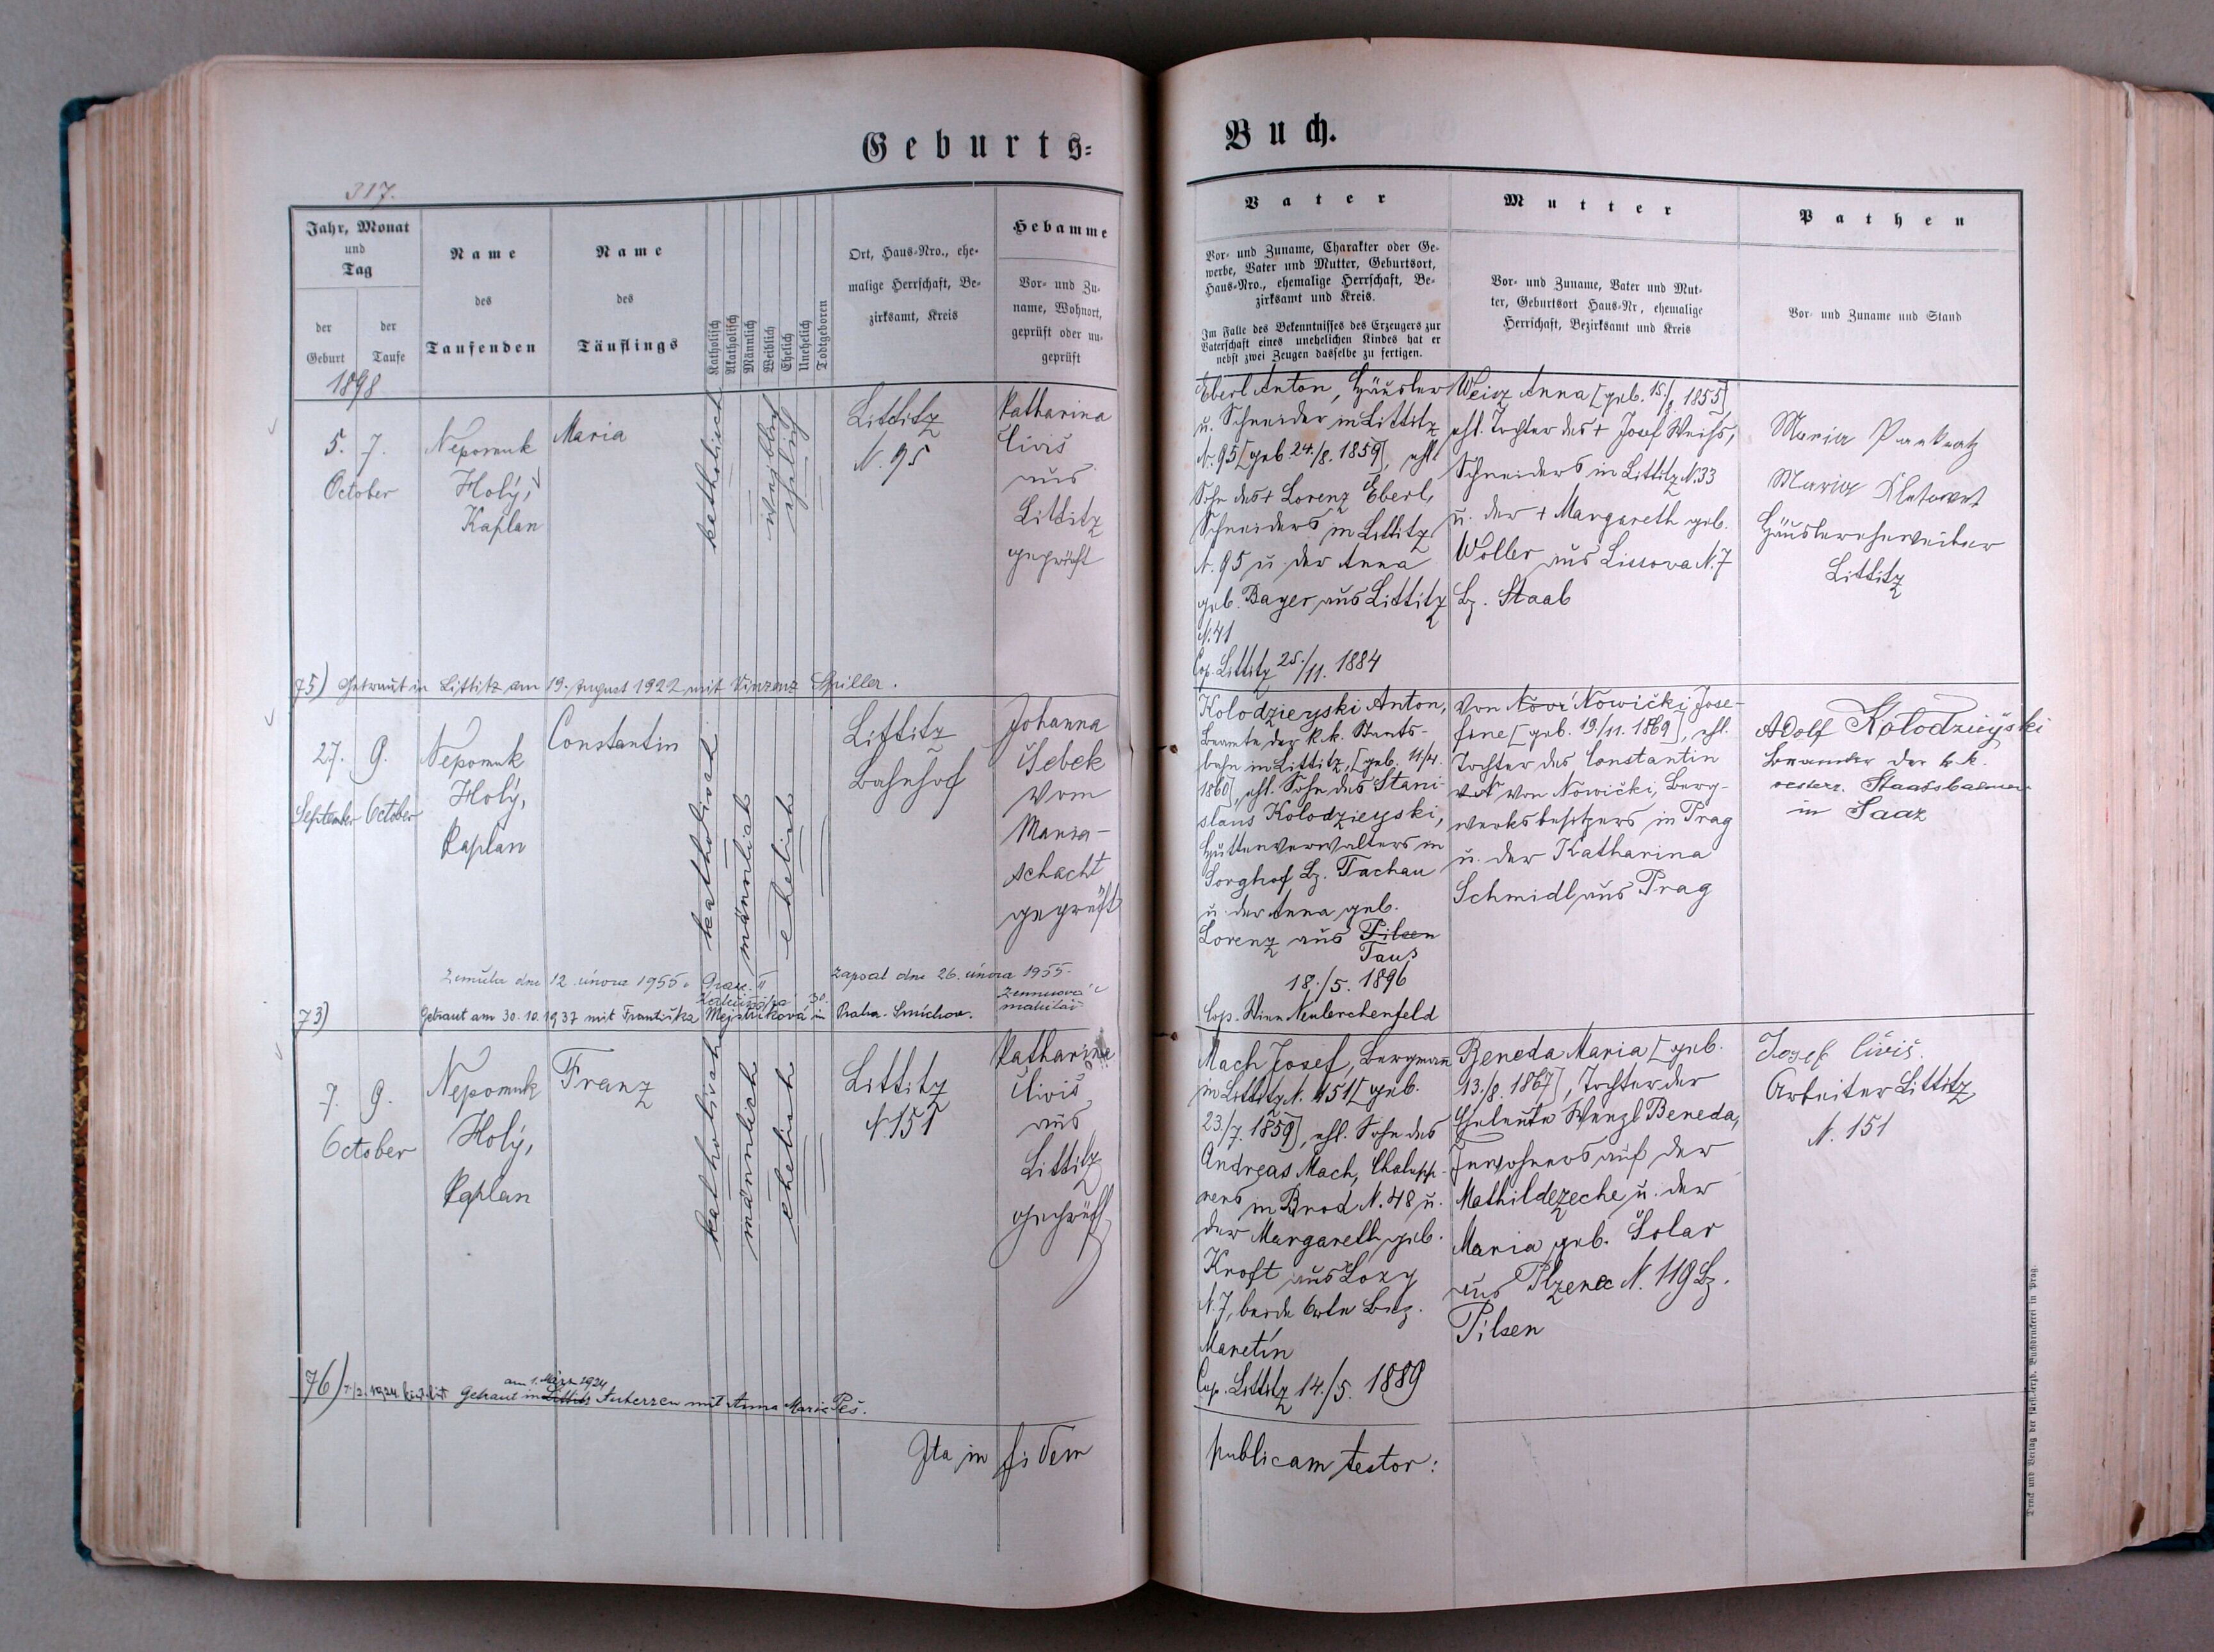 Geburts=
Buch.
317.
Jahr, Monat
und
Tag
der
Geburt
der
Taufe
Name
des
Taufenden
Name
des
Täuflings
Katholisch
Akatholisch
Männlich
Weiblich
Ehelich
Unehelich
Todtgeboren
Ort, Haus-Nro., ehe-
malige Herrschaft, Be-
zirksamt, Kreis
Hebamme
Vor- und Zu-
name, Wohnort,
geprüft oder un-
geprüft
Vater
Vor- und Zuname, Charakter oder Ge-
werbe, Vater und Mutter, Geburtsort,
Haus-Nro., ehemalige Herrschaft, Be-
zirksamt und Kreis.
Im Falle des Bekenntnisses des Erzeugers zur
Vaterschaft eines unehelichen Kindes hat er
nebst zwei Zeugen dasselbe zu fertigen.
Mutter
Vor- und Zuname, Vater und Mut-
ter, Geburtsort Haus-Nr, ehemalige
Herrschaft, Bezirksamt und Kreis
Pathen
Vor- und Zuname und Stand
1898
5. 7.
October
Nepomuk
Holý,
Kaplan
Maria
katholisch
weiblich
ehelich
Littitz
N. 95
Katharina
Čiviš
aus
Littitz
geprüft
Eberl Anton, Häusler
u. Schneider in Littitz
N. 95 [geb. 24./8. 1859], ehl.
Sohn des + Lorenz Eberl,
Schneiders in Littitz
N. 95 u. der Anna
geb. Bayer aus Littitz
N. 41
Cop. Littitz 25./11. 1884
Weisz Anna [geb. 15./8. 1855]
ehl. Tochter des + Josef Weiß,
Schneiders in Littitz N. 33
u. der + Margareth geb.
Woller aus Lissova N. 7
Bz. Staab
Maria Pankratz
Maria
Häuslersheweiber
Littitz
75) Getraut in Littitz am 19. August 1922 mit Vinzenz Spiller.
27. 9.
September October
Nepomuk
Holý,
Kaplan
Constantin
katholisch
männlich
ehelich
Littitz
Bahnhof
Johanna
Šebek
vom
Maria-
schacht
geprüft
Kolodzieyski Anton,
Beamte der k.k. Staats-
bahn in Littitz, [geb. 11/4.
1860], ehl. Sohn des Stani-
slaus Kolodzieyski,
Hüttenverwalters in
Sorghof Bz. Tachau
u. der Anna geb.
Lorenz aus Pilsen
Taus
18./5. 1896
Cop. Wien Neulerchenfeld
Von Nowički Jose-
fine [geb. 19/11. 1869], ehl.
Tochter des Constantin
von Nowički, Berg-
werksbesitzers in Prag
u. der Katharina
Schmidl aus Prag
Adolf Kolodzieyski
Beamter der k.k.
oesterr. Staatsbahnen
in Saaz
Zemřela dne 12. února 1955. Praze II
zapsal dne 26. února 1955.
73) Getraut am 30. 10. 1937 mit Františka Mejstříková in Praha-Smíchov.
matrikář
7. 9.
October
Nepomuk
Holý,
Kaplan
Franz
katholisch
männlich
ehelich
Littitz
N. 151
Katharina
Čiviš
aus
Littitz
geprüft
Mach Josef, Bergmann
in Littitz N. 151 [geb.
23./7. 1859], ehl. Sohn des
Andreas Mach, Chalupp-
ners in Brod N. 48 u.
der Margareth geb.
Kroft aus Lozy
N. 7, beide Orte Bez.
Manetín
Cop. Littitz 14./5. 1889
Beneda Maria [geb.
13./8. 1867], Tochter der
Eheleute Wenzl Beneda,
Inwohners auf der
Mathildezeche u. der
Maria geb. Šolar
aus Plzenec N. 119 Bz.
Pilsen
Josef Čiviš.
Arbeiter Littitz
N. 151
76) am 1. März 1924
Getraut in Littitz Auherzen mit Anna Maria Peš.
Ita in fidem
publicam testor:
Druck und Verlag der fürst.-erzb. Buchdruckerei in Prag.